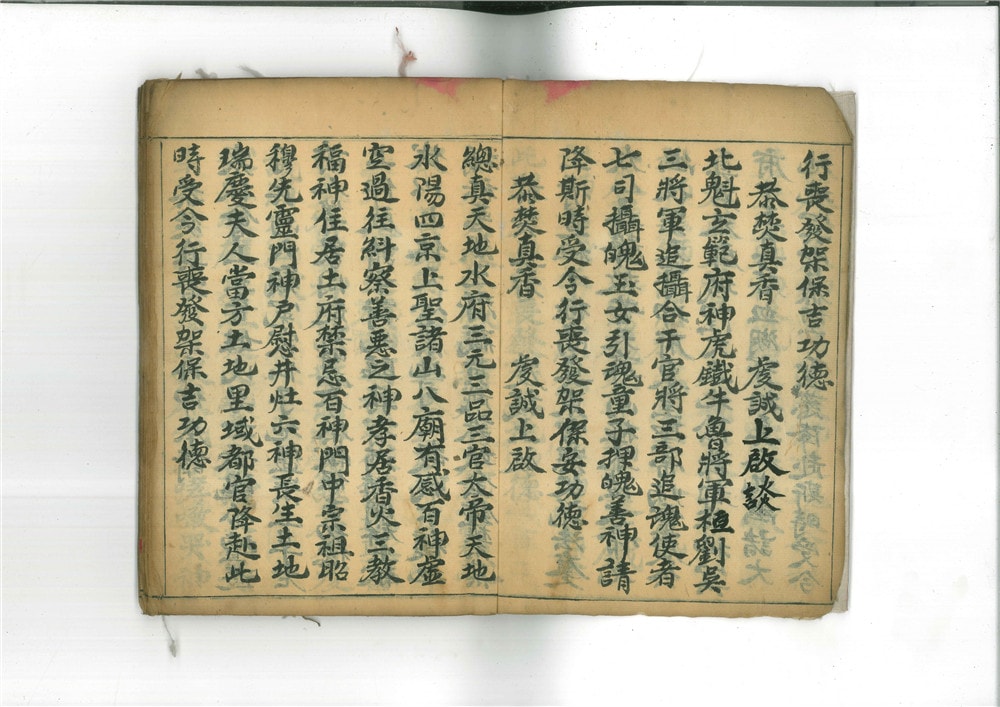 行喪發架保吉功德
恭焚真香 虔誠上啟談
北魁玄範府神虎鐵牛魯將軍桓劉吳
三將軍追攝合干官將三部追魂使者
七司攝魄玉女引魂童子押魄善神請
降斯時受今行喪發架保安功德
恭焚真香 虔誠上啟
總真天地水府三元三品三官大帝天地
水陽四京上聖諸山八廟有感百神虛
空過往糾察善惡之神孝居香火三教
福神住居土府禁忌百神門中宗祖昭
穆先靈門神户慰井灶六神長生土地
瑞慶夫人當方土地里域都官降赴此
時受今行喪發架保吉功德